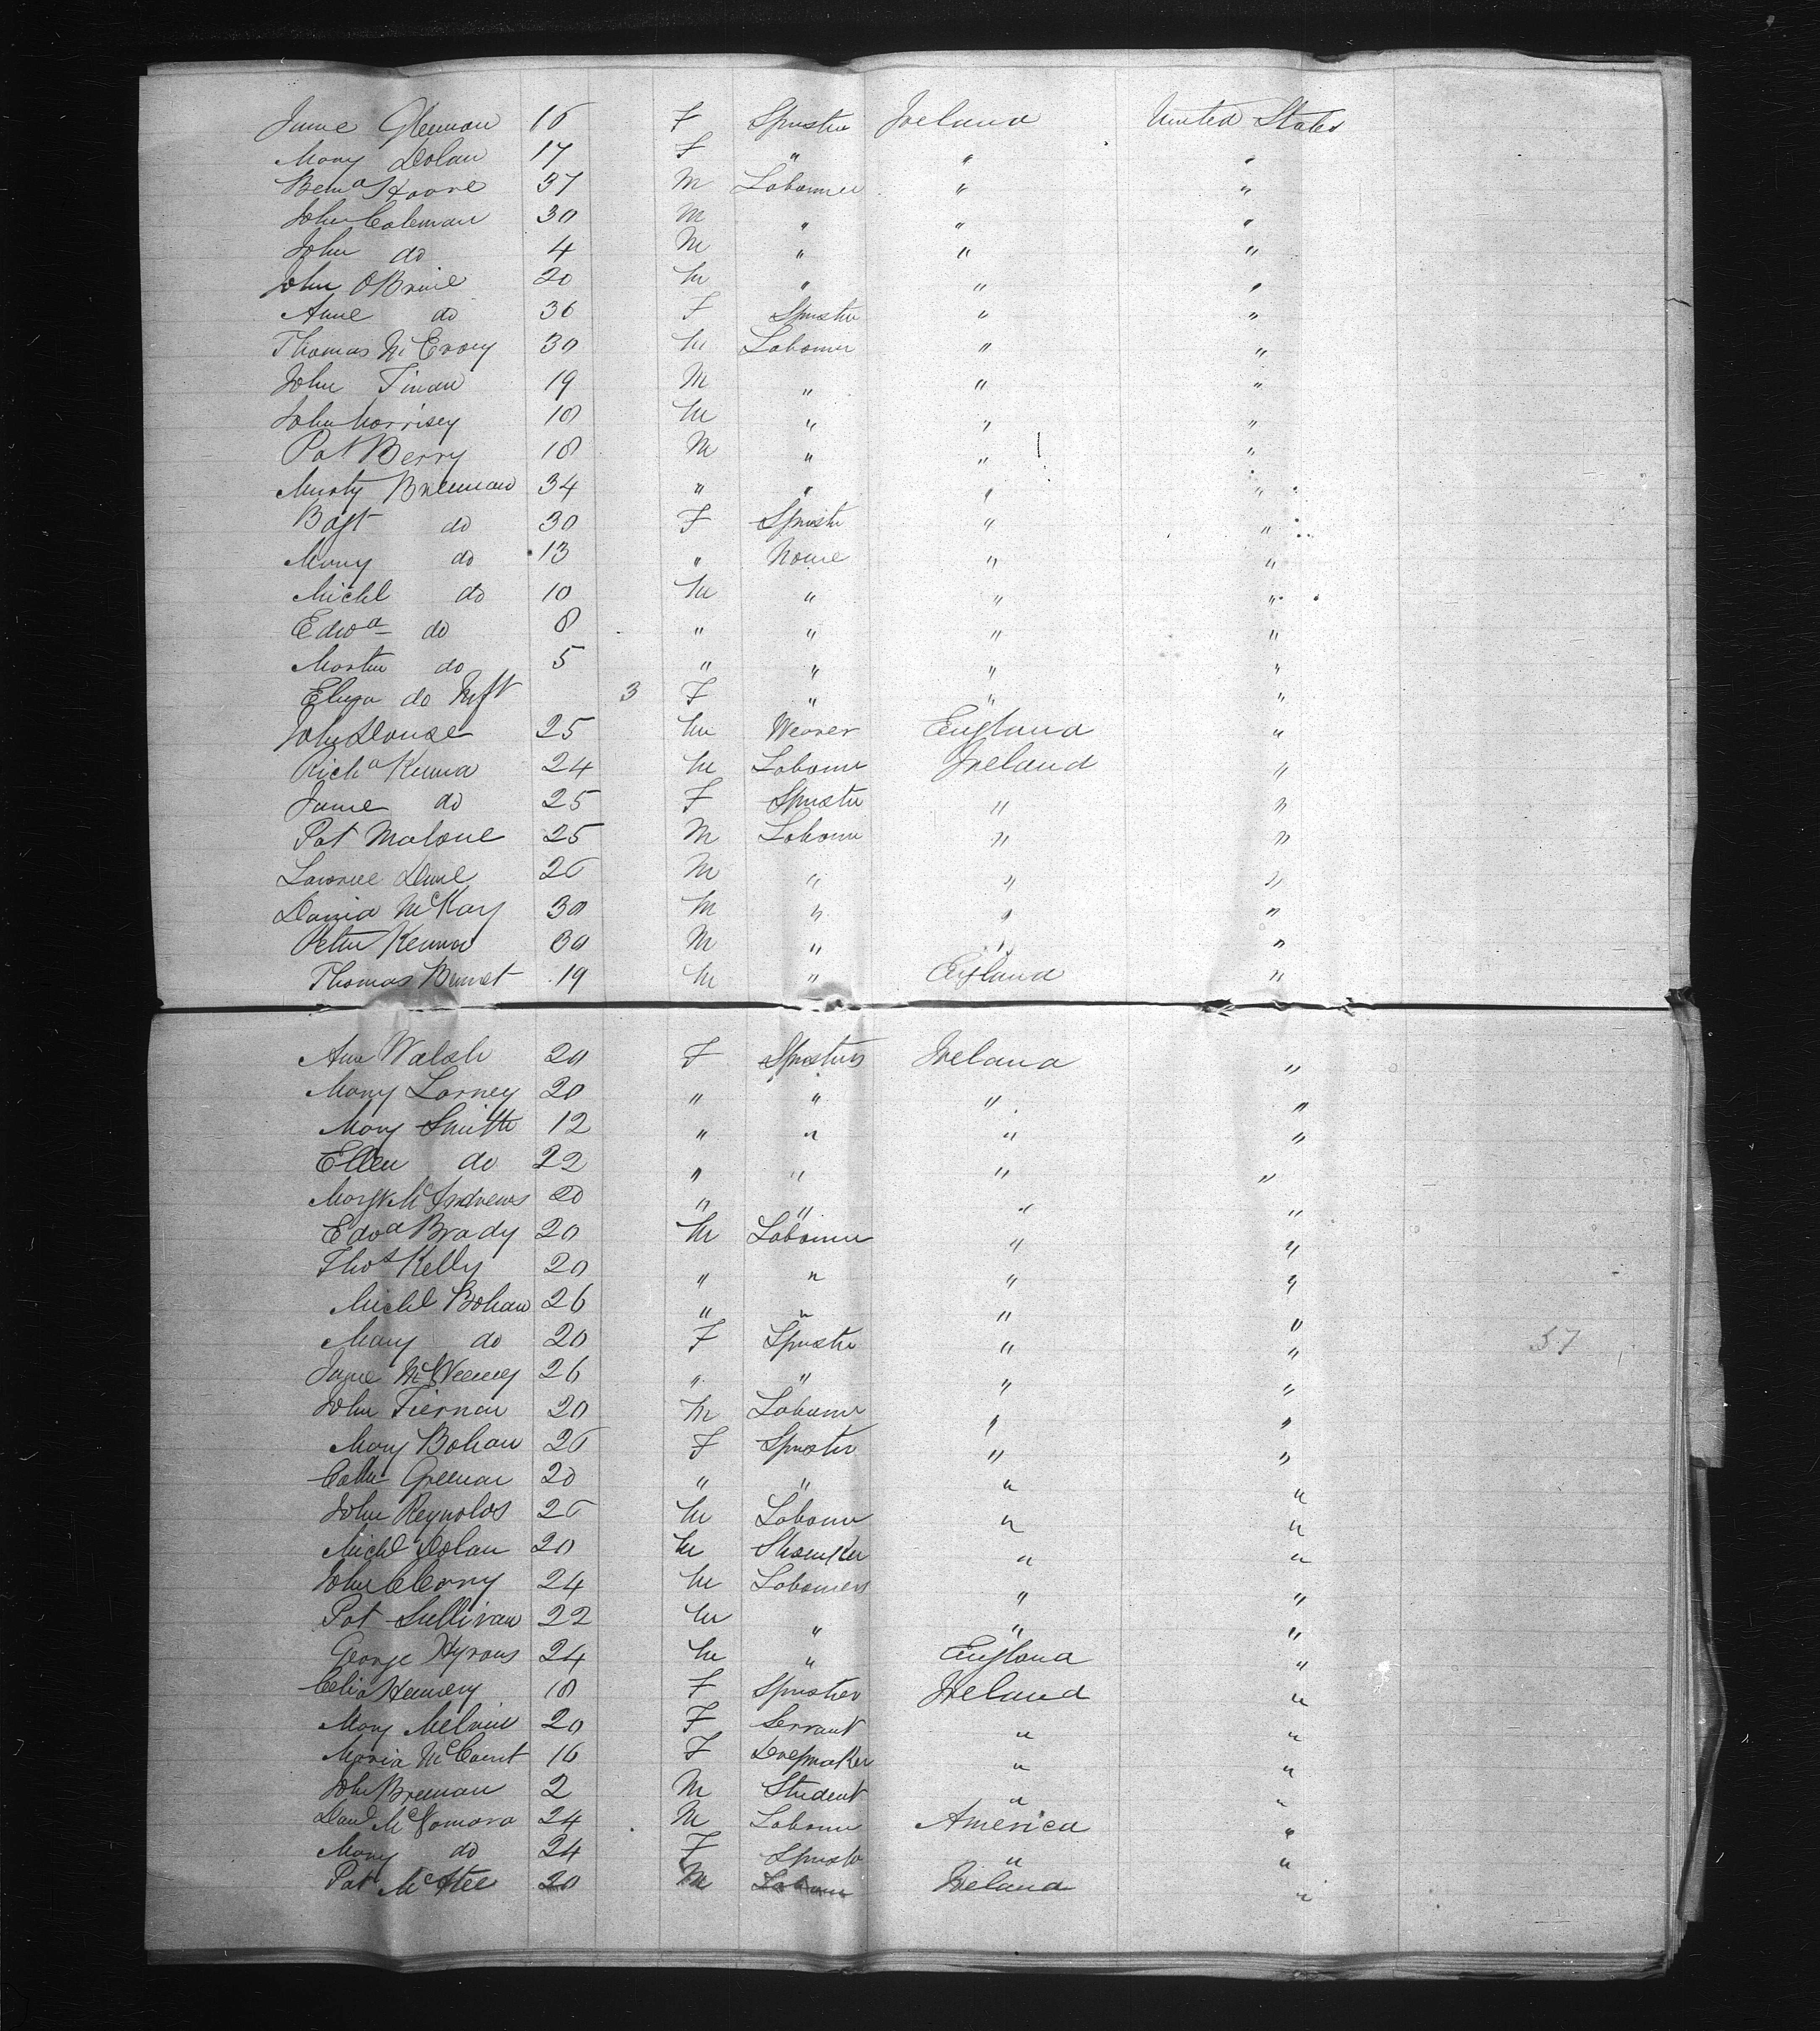 Jane Glennon 16 F Spinster Ireland United States
Mary Dolan 17 F " " "
Bernd Hoare 37 M Labourer " "
John Coleman 30 M " " "
John do 4 M " " "
John OBrine 20 M " " "
Anne do 36 F Spinster " "
Thomas McEvoey 30 M Labourer " "
John Tinan 19 M " " "
John Morrisey 18 M " " "
Pat Berry 18 M " " "
Murty Brennan 34 " " " "
30 F Spinster " "
Mary do 13 " None " "
Michl do 10 M " " "
Edwd do 8 " " " "
Martin do 5 " " " "
Eliza do Inft 3 F " " "
John 25 M Weaver England "
Richd Kenna 24 M Labourer Ireland "
Jane do 25 F Spinster " "
Pat Malone 25 M Labourer " "
Lawrence Dune 26 M " " "
David McKay 30 M " " "
Peter Kenna 30 M " " "
Thomas Bennet 19 M " England "
Ann Walsh 20 F Spinsters Ireland "
Mary Larney 20 " " " "
Mary Smith 12 " " " "
Ellen do 22 " " " "
Margt McAndrews 20 " " " "
Edwd Brady 20 M Labourer " "
Thos Kelly 20 " " " "
Michl Bohan 26 " " " "
Mary do 20 F Spinster " " 57
Jane McWeeney 26 " " " "
John Tiernan 20 M Labourer " "
Mary Bohan 26 F Spinster " "
Cathe Greenan 20 " " " "
John Reynolds 26 M Labourer " "
Michl Dolan 20 M Shomker " "
John Clarny 24 M Labourers " "
Pat Sullivan 22 M " " "
George Hyrons 24 M " England "
Celia Henery 18 F Spinster Ireland "
Mary Melvin 20 F Servant " "
Maria McCourt 16 F Dresmaker " "
John Brennan 2 M Student " "
Danl McNamara 24 M Labourer America "
Mary do 24 F Spinster " "
Pat McAtee 20 M Labourer Ireland "